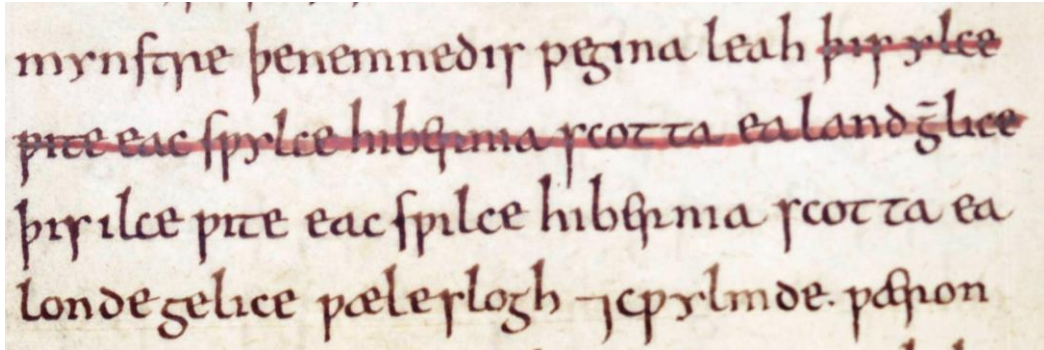 mynstre þenemnedis ƿegina leah þis ylce
ƿite eac sƿylce hibernia scotta ealand ḡlice
þis ilce ƿite eac sƿilce hibernia scotta ea
londe gelice ƿæle slogh ⁊cƿylmde. ƿæron